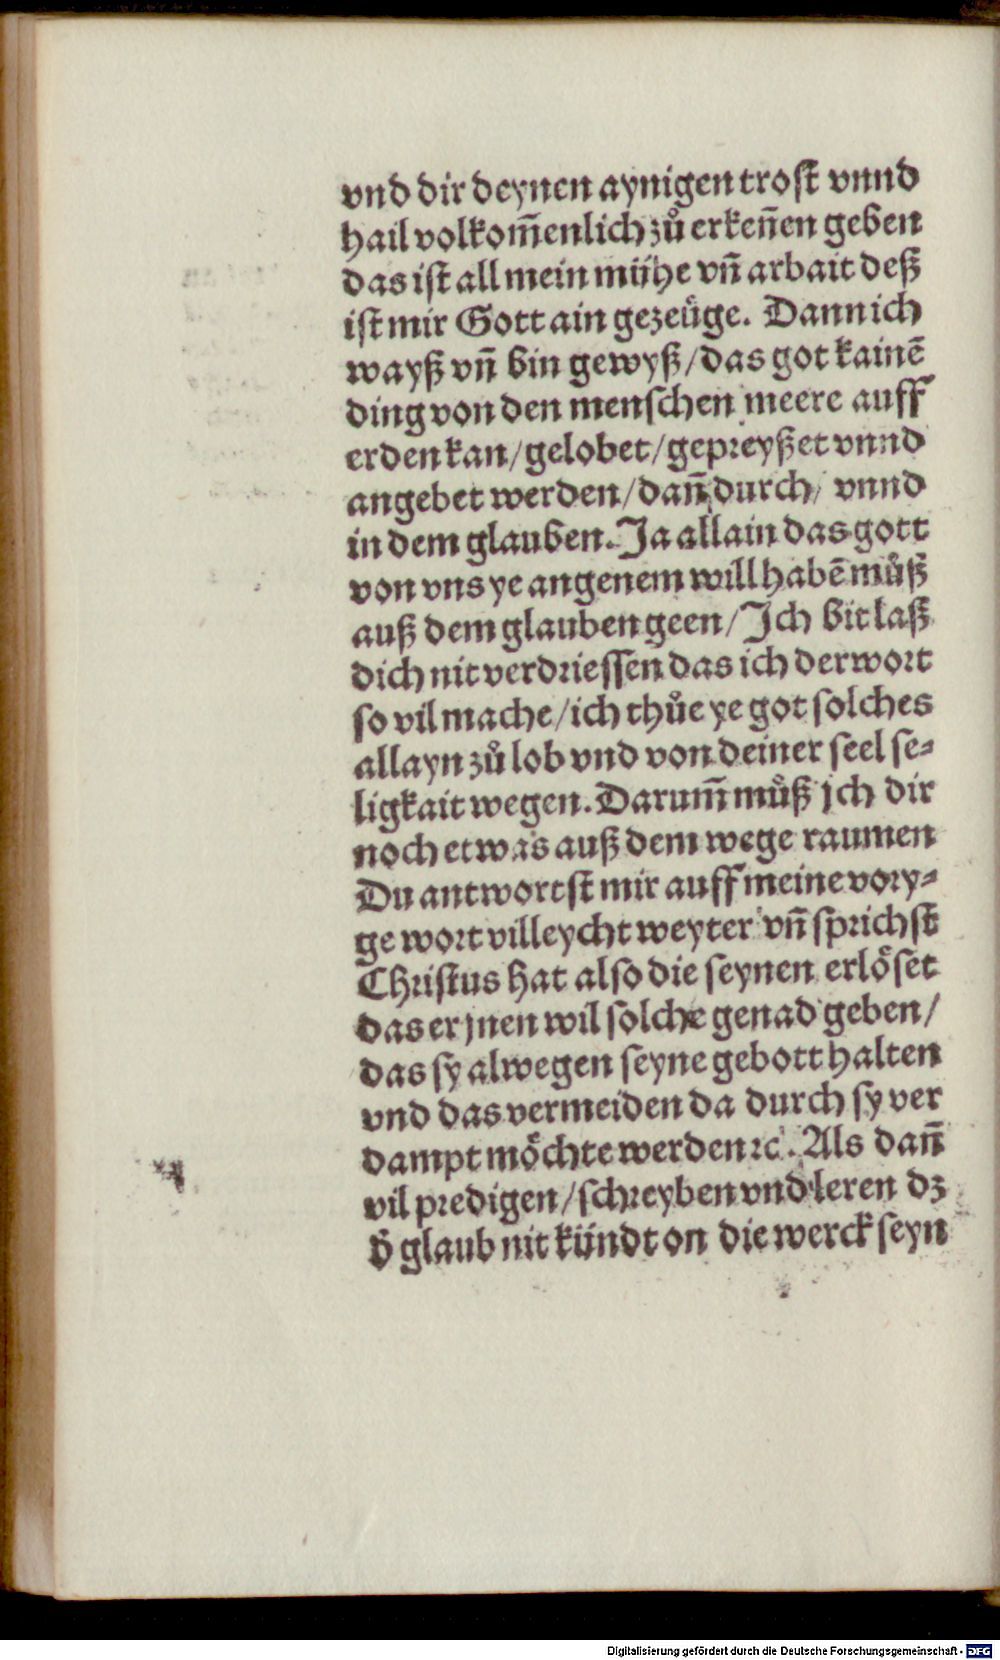 vnd dir deynen aynigen trost vnnd
hail volkom̃enlich zů erken̄en geben
das ist all mein mühe vn̄ arbait deß
ist mir Gott ain gezeüge. Dann ich
wayß vn̄ bin gewyß/das got kainē
ding von den menschen meere auff
erden kan/gelobet/gepreyßet vnnd
angebet werden/dan̄ durch/ vnnd
in dem glauben. Ja allain das gott
von vns ye angenem will habē můß
auß dem glauben geen/Ich bit laß
dich nit verdriessen das ich der wort
so vil mache/ich thůe ye got solches
allayn zů lob vnd von deiner seel se⸗
ligkait wegen. Darum̃ můß jch dir
noch etwas auß dem wege raumen
Du antwortst mir auff meine vory⸗
ge wort villeycht weyter vn̄ sprichst
Christus hat also die seynen erlöset
das er jnen wil solche genad geben/
das sy alwegen seyne gebott halten
vnd das vermeiden da durch sy ver
dampt möchte werden ꝛc. Als dan̄
vil predigen/schreyben vnd leren dz
d̄ glaub nit kündt on die werck seyn
Digitalisierung gefördert durch die Deutsche Forschungsgemeinschaft - DFG